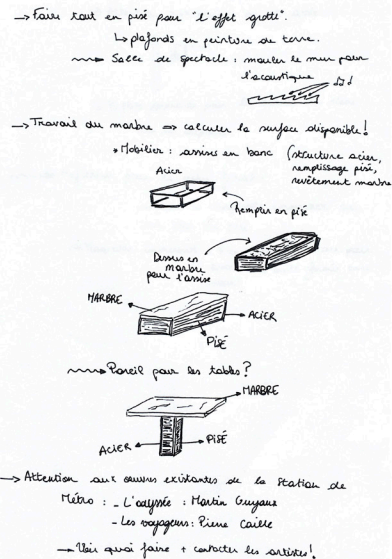 → Faire tout en pisé pour "l'effet grotte".
↳ plafonds en peinture de terre.
Salle de spectacle : mouler le mur pour
l'acoustique
→ Travail du marbre => calculer la surface disponible!
* Mobilier : assises en banc (structure acier,
remplissage pisé,
revêtement marbre
Acier
Remplir en pisé
Dessus en
marbre
pour l'assise
MARBRE
ACIER
PISÉ
Pareil pour les tables?
MARBRE
ACIER
PISÉ
→ Attention aux œuvres existantes de la station de
Métro : - L'odyssée : Martin Guyaux
- Les voyageurs : Pierre Caille
→ Voir quoi faire + contacter les artistes!